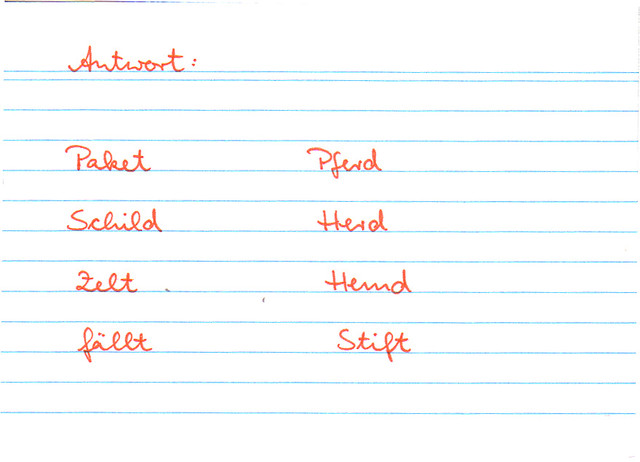 Antwort:
Paket Pferd
Schild Herd
Zelt Hemd
fällt Stift